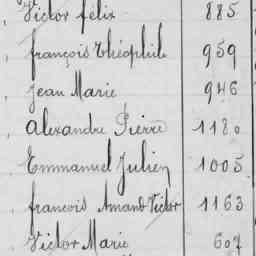 Victor félix 885
françois Théophile 959
Jean Marie 946
Alexandre Pierre 1180
Emmanuel Julien 1005
francois Amand Victor 1163
Victor Marie 607